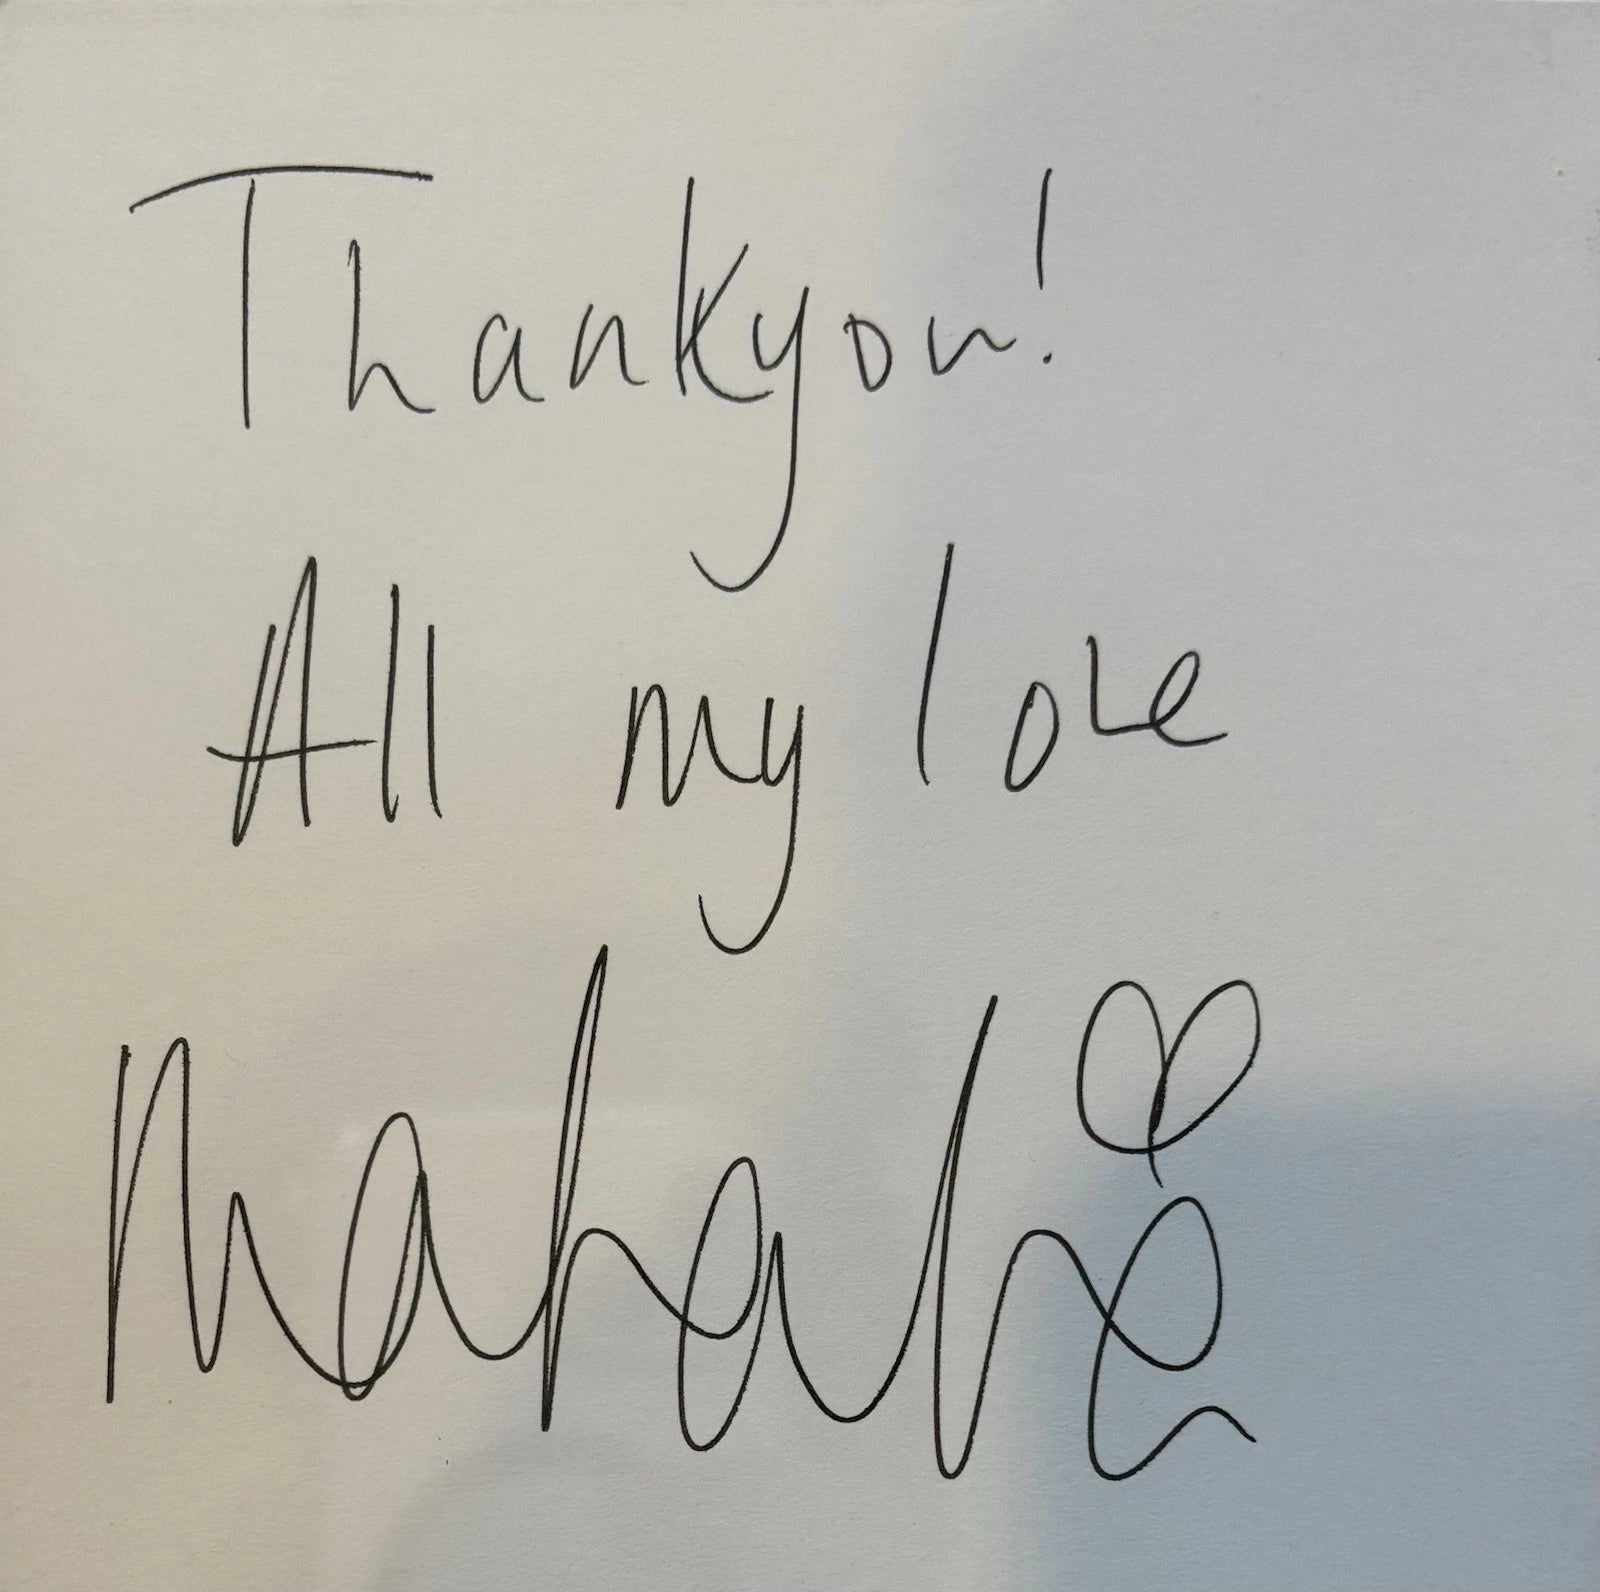 Thankyou!
All my love
Mahalia